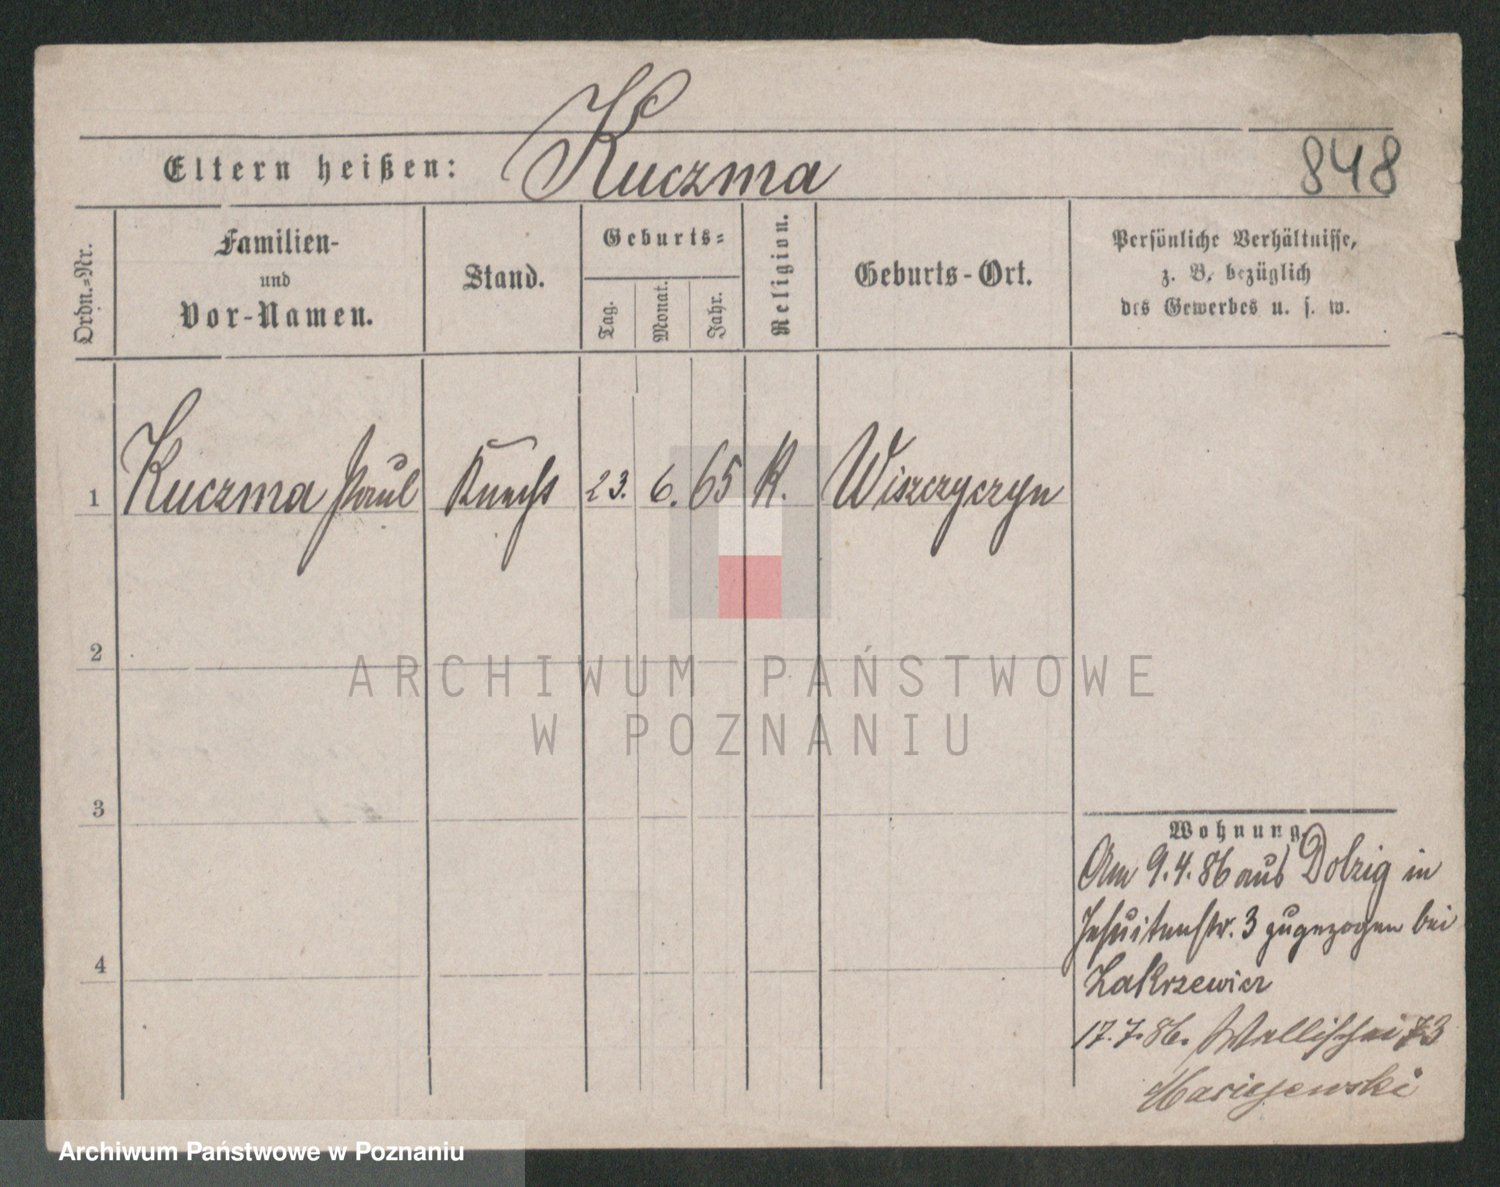 Kuczma
Eltern heißen:
848
Ordn.-Nr.
Familien-
und
Vor-Namen.
Stand.
Geburts-
Tag.
Monat.
Jahr.
Religion.
Geburts-Ort.
Persönliche Verhältnisse,
z. B. bezüglich
des Gewerbes u. s. w.
1 Kuczma Paul Knecht 23. 6. 65 K. Wiszczyczyn
2
3
4
Wohnung.
Am 9.4.86 aus Dolzig in
Jesuitenstr. 3 zugezogen bei
Zakrzewicz
17.7.86. Wallischei 73
Maciejewski
ARCHIWUM PAŃSTWOWE
W POZNANIU
Archiwum Państwowe w Poznaniu